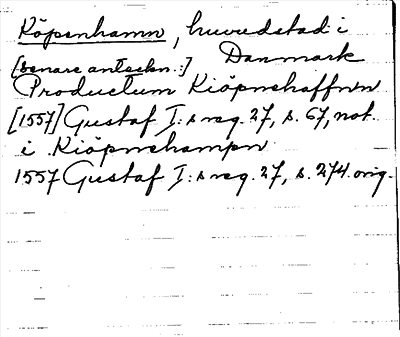 Köpenhamn, huvudstad i
Danmark
[senare anteckn.:]
Productum Kiöpnehaffnn
[1557] Gustaf I:s reg. 27, s. 67, not.
i Kiöpnehampn
1557 Gustaf I:s reg. 27, s. 274. orig.